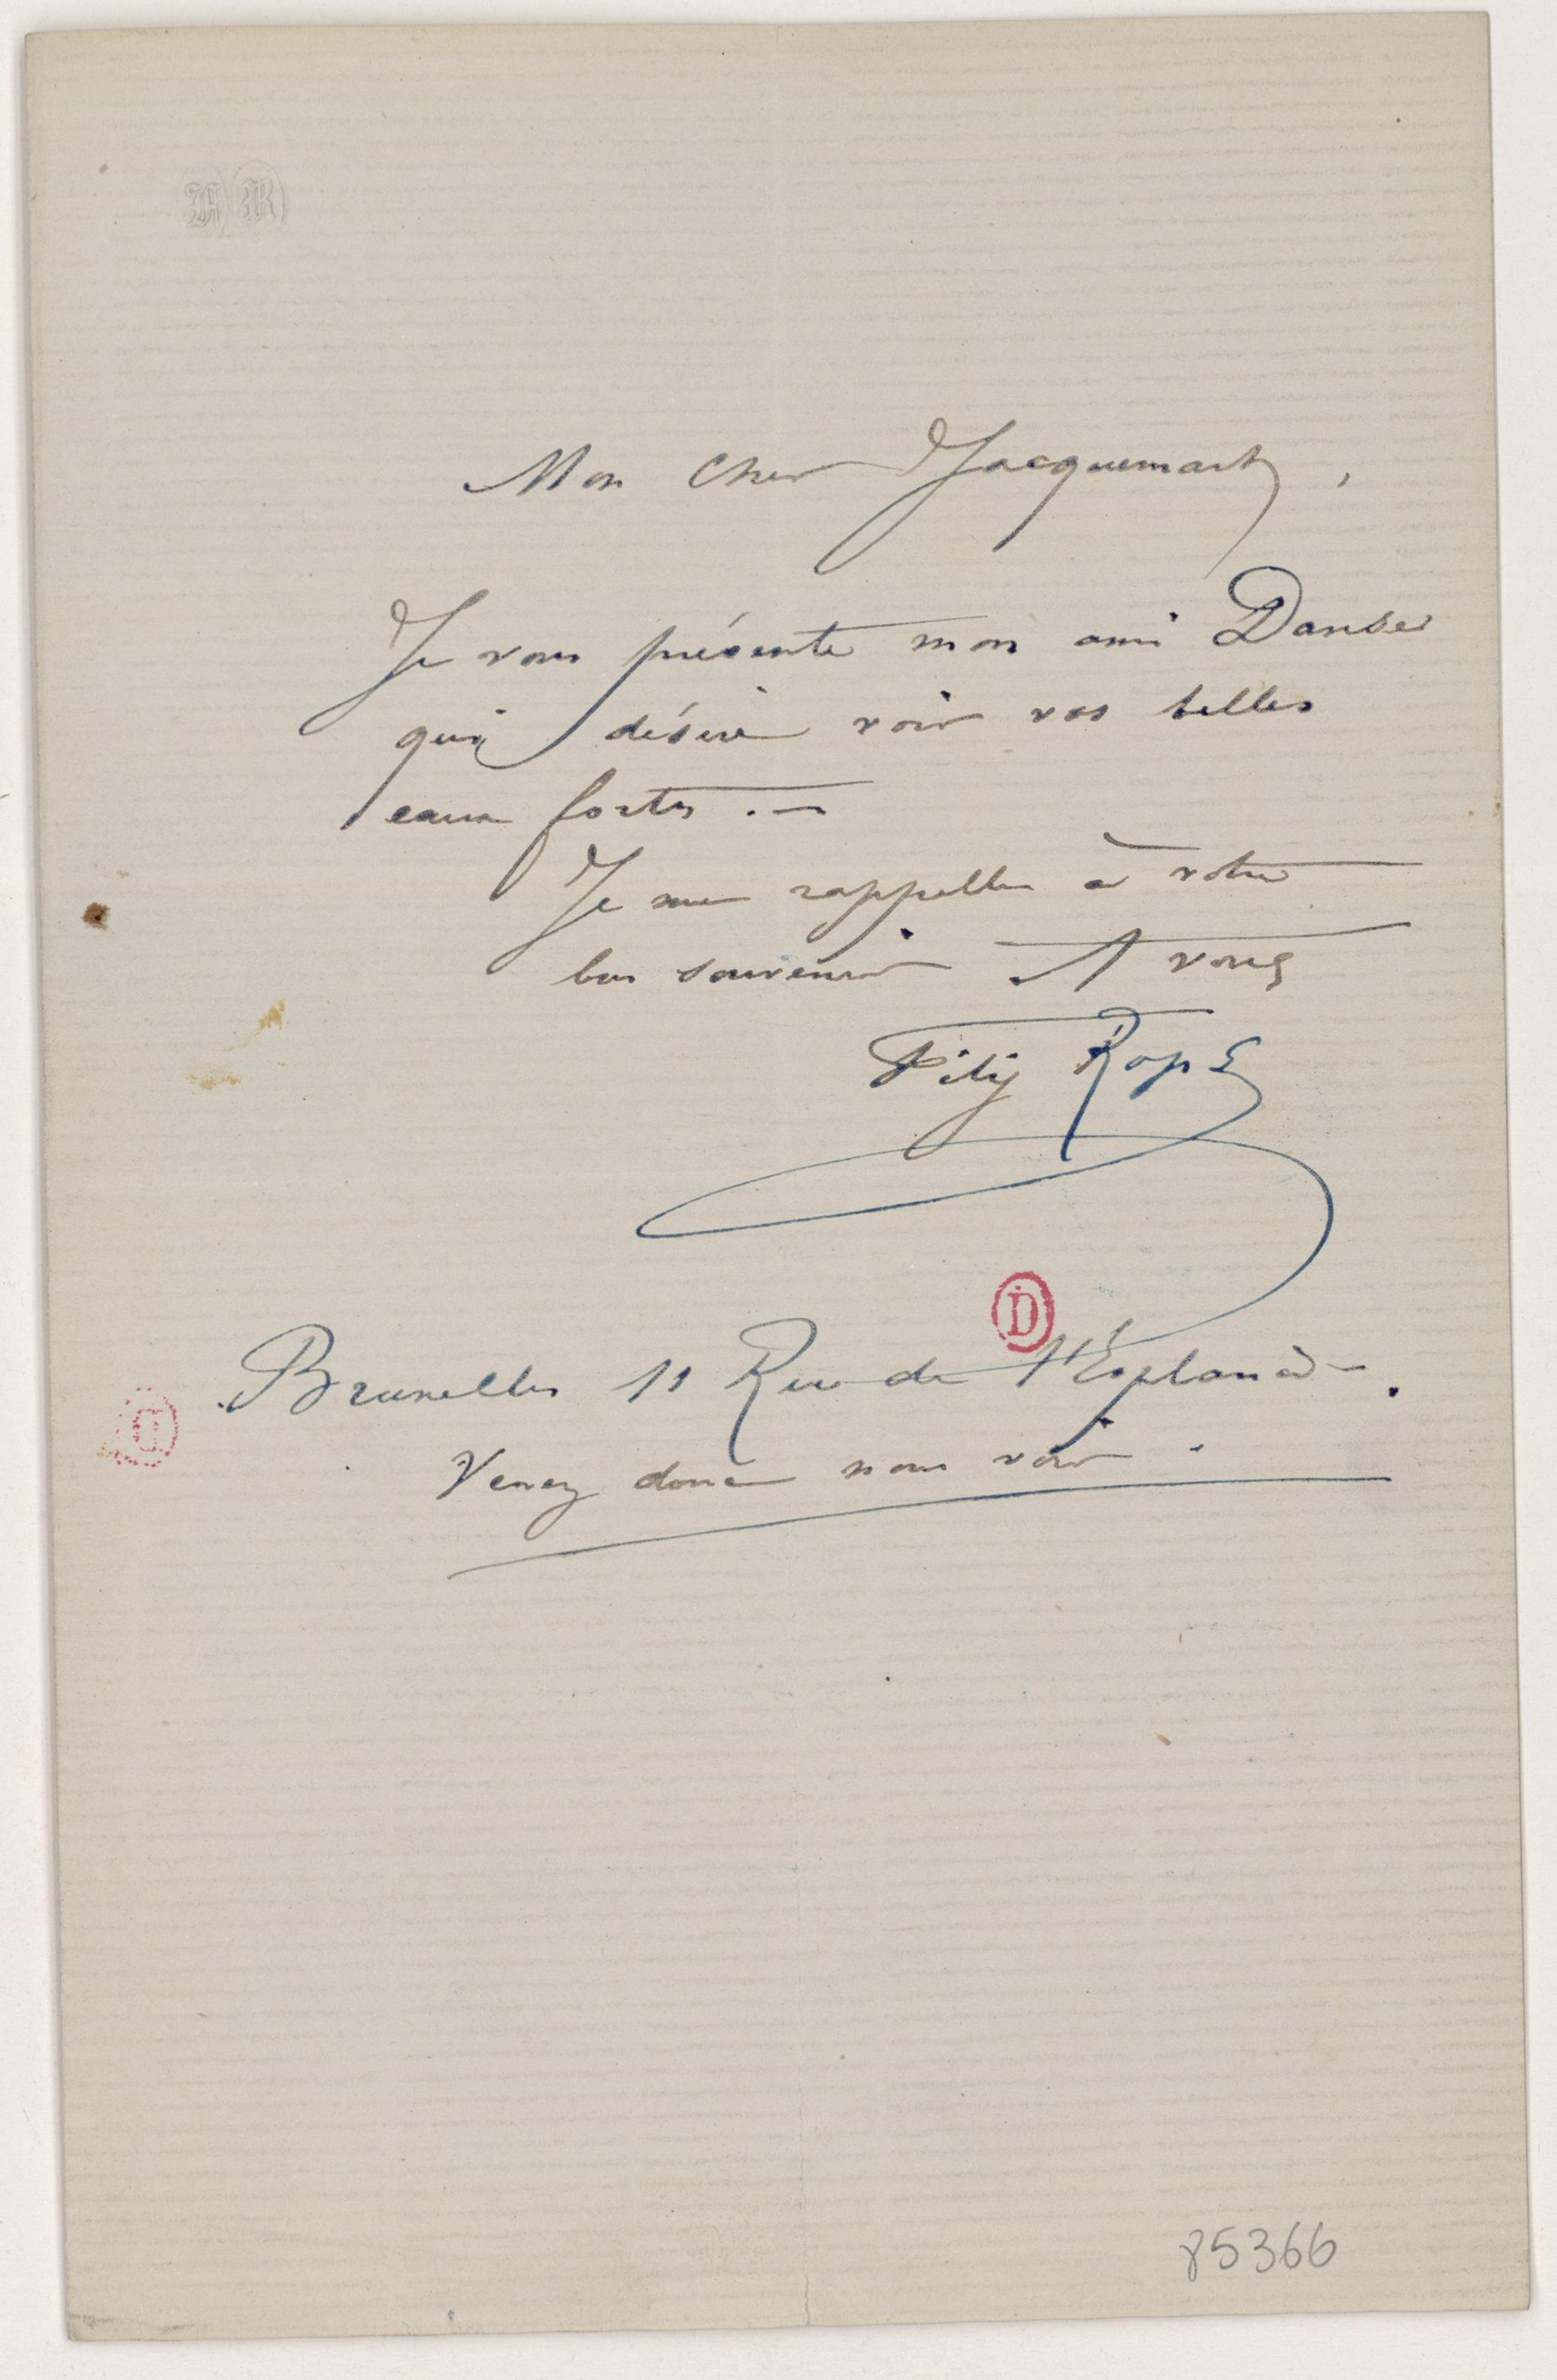 FR
Mon cher Jacquemart,
Je vous présente mon ami Danse
qui désire voir vos belles
eaux fortes. —
Je me rappelle à votre
bon souvenir A vous
Rops
D
Bruxelles 11 Rue de l'Esplanade.
D
Venez donc nous voir.
85366